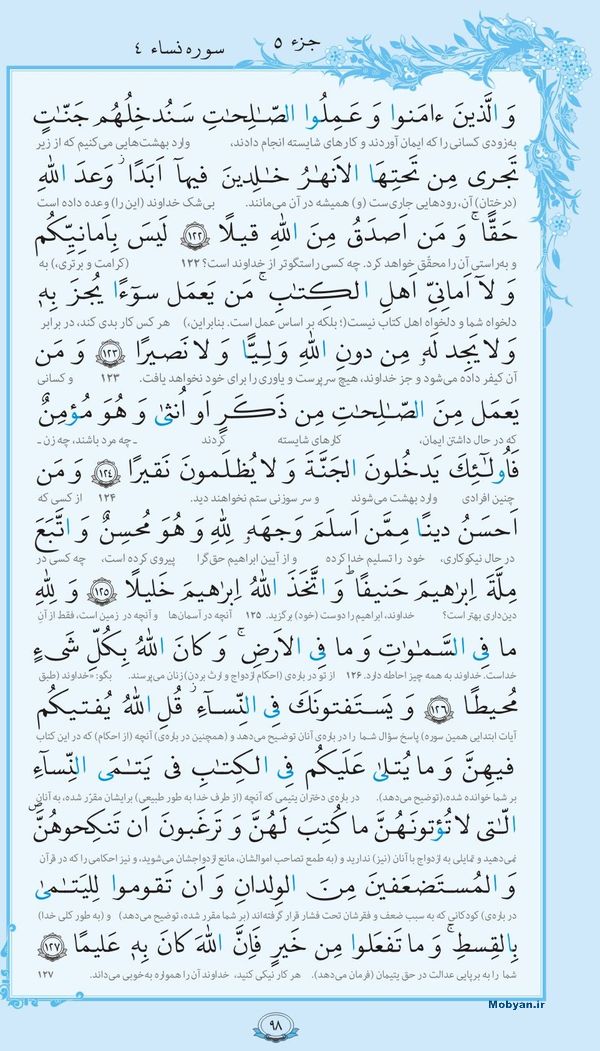 جزء ۵
سوره نساء ۴
وَ الَّذينَ ءامَنوا وَ عَمِلُوا الصّالِحاتِ سَنُدخِلُهُم جَنّاتٍ
به‌زودی کسانی را که ایمان آوردند و کارهای شایسته انجام دادند، وارد بهشت‌هایی می‌کنیم که از زیر
تَجری مِن تَحتِهَا الاَنهارُ خالِدینَ فیها اَبَدًا وَعدَ اللهِ
(درختان) آن، رودهایی جاری‌ست (و) همیشه در آن می‌مانند. بی‌شک خداوند (این را) وعده داده است
حَقًّا وَ مَن اَصدَقُ مِنَ اللهِ قیلًا ﴿۱۲۲﴾ لَیسَ بِاَمانِیِّکُم
و به‌راستی آن را محقّق خواهد کرد. چه کسی راستگوتر از خداوند است؟ ۱۲۲ (کرامت و برتری،) به
وَ لآ اَمانِیِّ اَهلِ الکِتابِ مَن یَعمَل سوءًا یُجزَ بِه
دلخواه شما و دلخواه اهل کتاب نیست(؛ بلکه بر اساس عمل است. بنابراین،) هر کس کار بدی کند، در برابر
وَ لا یَجِد لَهُ مِن دونِ اللهِ وَلِیًّا وَ لا نَصیرًا ﴿۱۲۳﴾ وَ مَن
آن کیفر داده می‌شود و جز خداوند، هیچ سرپرست و یاوری را برای خود نخواهد یافت. ۱۲۳ و کسانی
یَعمَل مِنَ الصّالِحاتِ مِن ذَکَرٍ اَو اُنثی وَ هُوَ مُؤمِنٌ
که در حال داشتن ایمان، کارهای شایسته کردند ـ چه مرد باشند، چه زن ـ
فَاُولئِکَ یَدخُلونَ الجَنَّةَ وَ لا یُظلَمونَ نَقیرًا ﴿۱۲۴﴾ وَ مَن
چنین افرادی وارد بهشت می‌شوند و سر سوزنی ستم نخواهند دید. ۱۲۴ از کسی که
اَحسَنُ دینًا مِمَّن اَسلَمَ وَجهَهُ لِلّهِ وَ هُوَ مُحسِنٌ وَ اتَّبَعَ
در حال نیکوکاری، خود را تسلیم خدا کرده و از آیین ابراهیم حق‌گرا پیروی کرده است، چه کسی در
مِلَّةَ اِبراهیمَ حَنیفًا وَ اتَّخَذَ اللهُ اِبراهیمَ خَلیلًا ﴿۱۲۵﴾ وَ لِلّهِ
دین‌داری بهتر است؟ خداوند، ابراهیم را دوست (خود) برگزید. ۱۲۵ آنچه در آسمان‌ها و آنچه در زمین است، فقط از آنِ
ما فِی السَّماواتِ وَ ما فِی الاَرضِ وَ کانَ اللهُ بِکُلِّ شَیءٍ
خداست. خداوند به همه چیز احاطه دارد. ۱۲۶ از تو درباره‌ی (احکام ازدواج و ارث بردن) زنان می‌پرسند. بگو: «خداوند (طبق
مُحیطًا ﴿۱۲۶﴾ وَ یَستَفتونَکَ فِی النِّسآءِ قُلِ اللهُ یُفتیکُم
آیات ابتدایی همین سوره) پاسخ سؤال شما را درباره‌ی آنان توضیح می‌دهد و (همچنین درباره‌ی) آنچه (از احکام) که در این کتاب
فیهِنَّ وَ ما یُتلی عَلَیکُم فِی الکِتابِ فی یَتامَی النِّسآءِ
بر شما خوانده شده، (توضیح می‌دهد). درباره‌ی دختران یتیمی که آنچه (از طرف خدا به طور طبیعی) برایشان مقرّر شده، به آنان
الّاتی لا تُؤتونَهُنَّ ما کُتِبَ لَهُنَّ وَ تَرغَبونَ اَن تَنکِحوهُنَّ
نمی‌دهید و تمایلی به ازدواج با آنان (نیز) ندارید و (به طمع تصاحب اموالشان، مانع ازدواجشان می‌شوید، و نیز احکامی را که در قرآن
وَ المُستَضعَفینَ مِنَ الوِلدانِ وَ اَن تَقوموا لِلیَتامی
درباره‌ی) کودکانی که به سبب ضعف و فقرشان تحت فشار قرار گرفته‌اند (بر شما مقرر شده، توضیح می‌دهد) و (به طور کلی خدا)
بِالقِسطِ وَ ما تَفعَلوا مِن خَیرٍ فَاِنَّ اللهَ کانَ بِه عَلیمًا ﴿۱۲۷﴾
شما را به برپایی عدالت در حق یتیمان (فرمان می‌دهد). هر کار نیکی کنید، خداوند آن را همواره به‌خوبی می‌داند. ۱۲۷
۹۸
Mobyan.ir